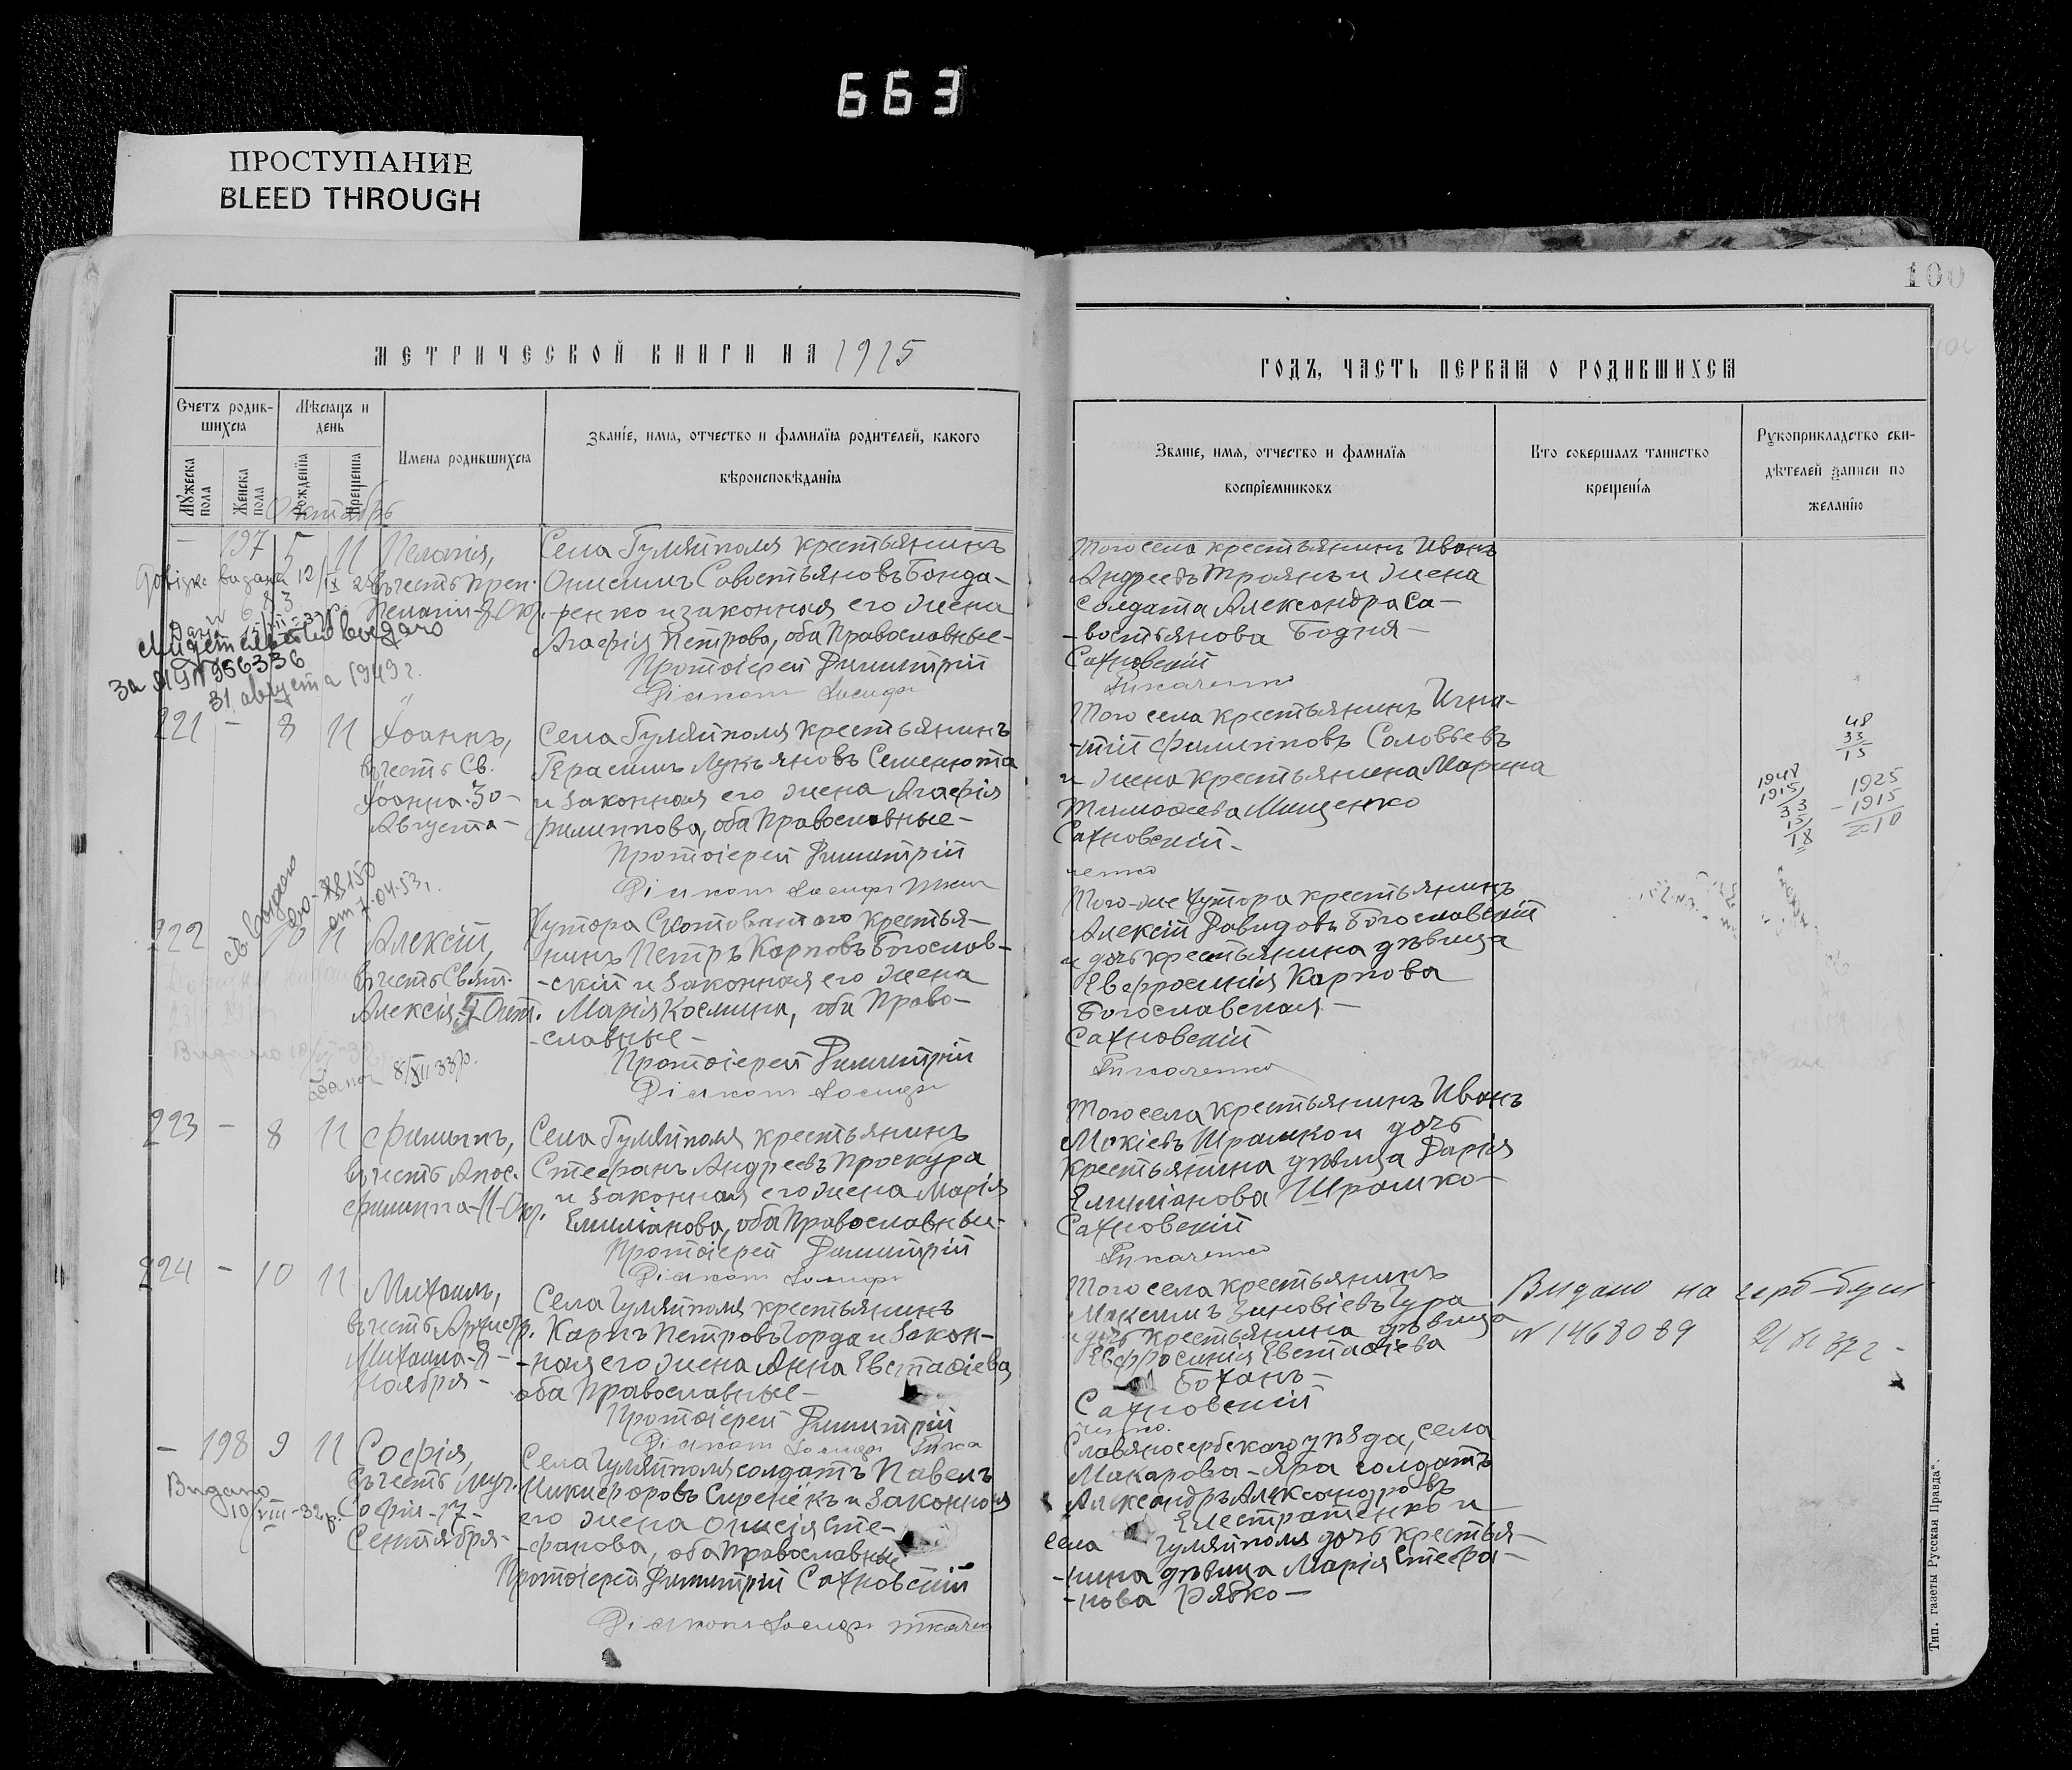 663
ПРОСТУПАНИЕ
BLEED THROUGH
100
МЕТРИЧЕСКОЙ КНИГИ НА 1915
Счетъ родив-
шихся
Мѣсяцъ и
день
Мужеска
пола
Женска
пола
Рожденія
Крещенія
Имена родившихся
Званіе, имя, отчество и фамилія родителей, какого
вѣроисповѣданія
Октябрь
— 197 5 11 Пелагія,
въ честь Преп.
Пелагіи-8 Окт.
Довідка видана 12/IX
за ЯГ № 956336
31 августа 1949 г.
Села Гуляйполя крестьянинъ
Онисимъ Савостьяновъ Бонда-
-ренко и законная его жена
Агафія Петрова, оба Православные-
Протоіерей Димитрій
Діаконъ Іосифъ
221 - 8 11 Іоаннъ,
въ честь Св.
Іоанна-30-
Августа-
Села Гуляйполя крестьянинъ
Герасимъ Лукьяновъ Семенюта
и законная его жена Агафія
Филиппова, оба Православные-
Протоіерей Димитрій
Діаконъ Іосифъ Ткач
222 11 Алексій,
въ честь Свят.
Алексія-5 Окт.
8/XII 33 р.
Хутора крестья-
нинъ Петръ Карповъ Богослов-
-скій и законная его жена
Марія Косьмина, оба Право-
-славные-
Протоіерей Димитрій
Діаконъ Іосифъ
223 - 8 11 Филиппъ,
въ честь Апос.
Филиппа-11-Окт.
Села Гуляйполя крестьянинъ
Стефанъ Андреевъ Проскура
и законная его жена Марія
Емиліанова, оба Православные-
Протоіерей Димитрій
Діаконъ Іосифъ
224 - 10 11 Михаилъ,
въ честь Архистр.
Михаила-8-
Ноября-
Села Гуляйполя крестьянинъ
Карпъ Петровъ Горда и закон-
-ная его жена Анна Евстафіева
оба Православные-
Протоіерей Димитрій
Діаконъ Іосифъ Тка
— 198 9 11 Софія,
въ честь Муч.
Софіи-17-
Сентября-
Видано
10/VIII-32 р.
Села Гуляйполя солдатъ Павелъ
Никифоровъ Сиренекъ и законная
его жена Стe-
-фанова, оба Православные
Протоіерей Димитрій Сахновскій
Діаконъ Іосифъ Ткачен
ГОДЪ, ЧАСТЬ ПЕРВАЯ О РОДИВШИХСЯ
Званіе, имя, отчество и фамилія
воспріемниковъ
Кто совершалъ таинство
крещенія
Рукоприкладство сви-
дѣтелей записи по
желанію
Того села крестьянинъ Иванъ
Андреевъ Троянъ и жена
солдата Александра Са-
-востьянова Бодня-
Сахновскій
Ткаченко
Того села крестьянинъ Игна-
-тій Филипповъ Соловьевъ
и жена крестьянина Марина
Тимофеева Мищенко
Сахновскій-
ченко
48
33
15
1948
1915
33
15
18
1925
-1915
=10
Того-же хутора крестьянинъ
Алексій Давидовъ Богословскій
и дочь крестьянина дѣвица
Евфросинія Карпова
Богославская-
Сахновскій
Ткаченко
Того села крестьянинъ Иванъ
Мокіевъ Шрамко и дочь
крестьянина дѣвица Дарія
Емиліанова Шрамко-
Сахновскій
Ткаченко
Того села крестьянинъ
Максимъ Зиновіевъ Чура
и дочь крестьянина дѣвица
Евфросинія Евстафіева
Боханъ-
Сахновскій
ченко.
Видано на герб-бум
№ 1468089 21 XI 37 г-
Славяносербскаго уѣзда, села
Макарова-Яра солдатъ
Александръ Александровъ
Елестратенко и
села Гуляйполя дочь крестья-
-нина дѣвица Марія Стефа-
-нова Рябко-
Тип. газеты „Русская Правда“.